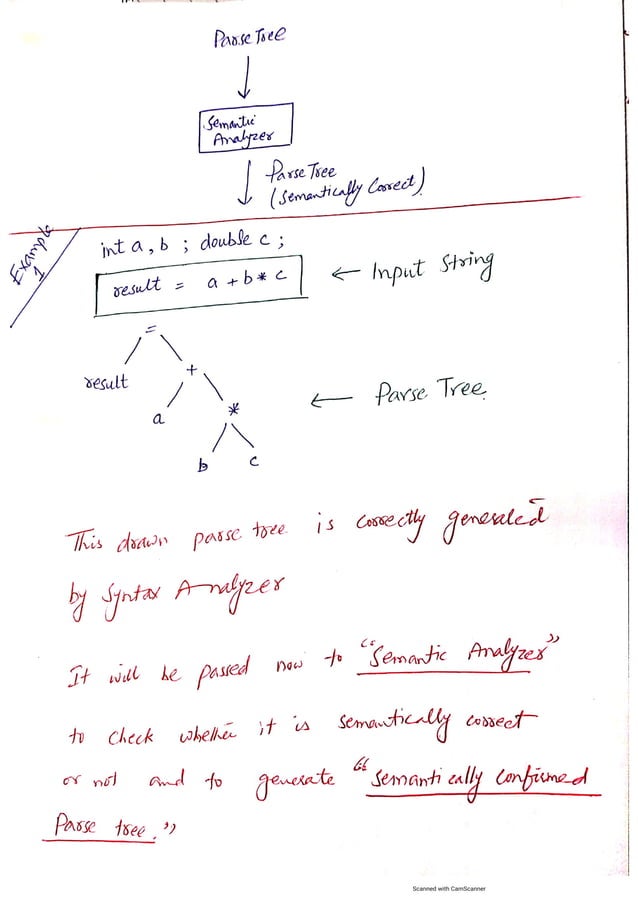 Parse Tree
Semantic
Analyzer
Parse Tree
(Semantically Correct)
Example
1
int a, b ; double c ;
result = a + b * c
← Input String
=
result
+
a
*
b
c
← Parse Tree
This drawn parse tree is correctly generated
by Syntax Analyzer
It will be passed now to "Semantic Analyzer"
to check whether it is semantically correct
or not and to generate "Semantically Confirmed
Parse tree."
Scanned with CamScanner